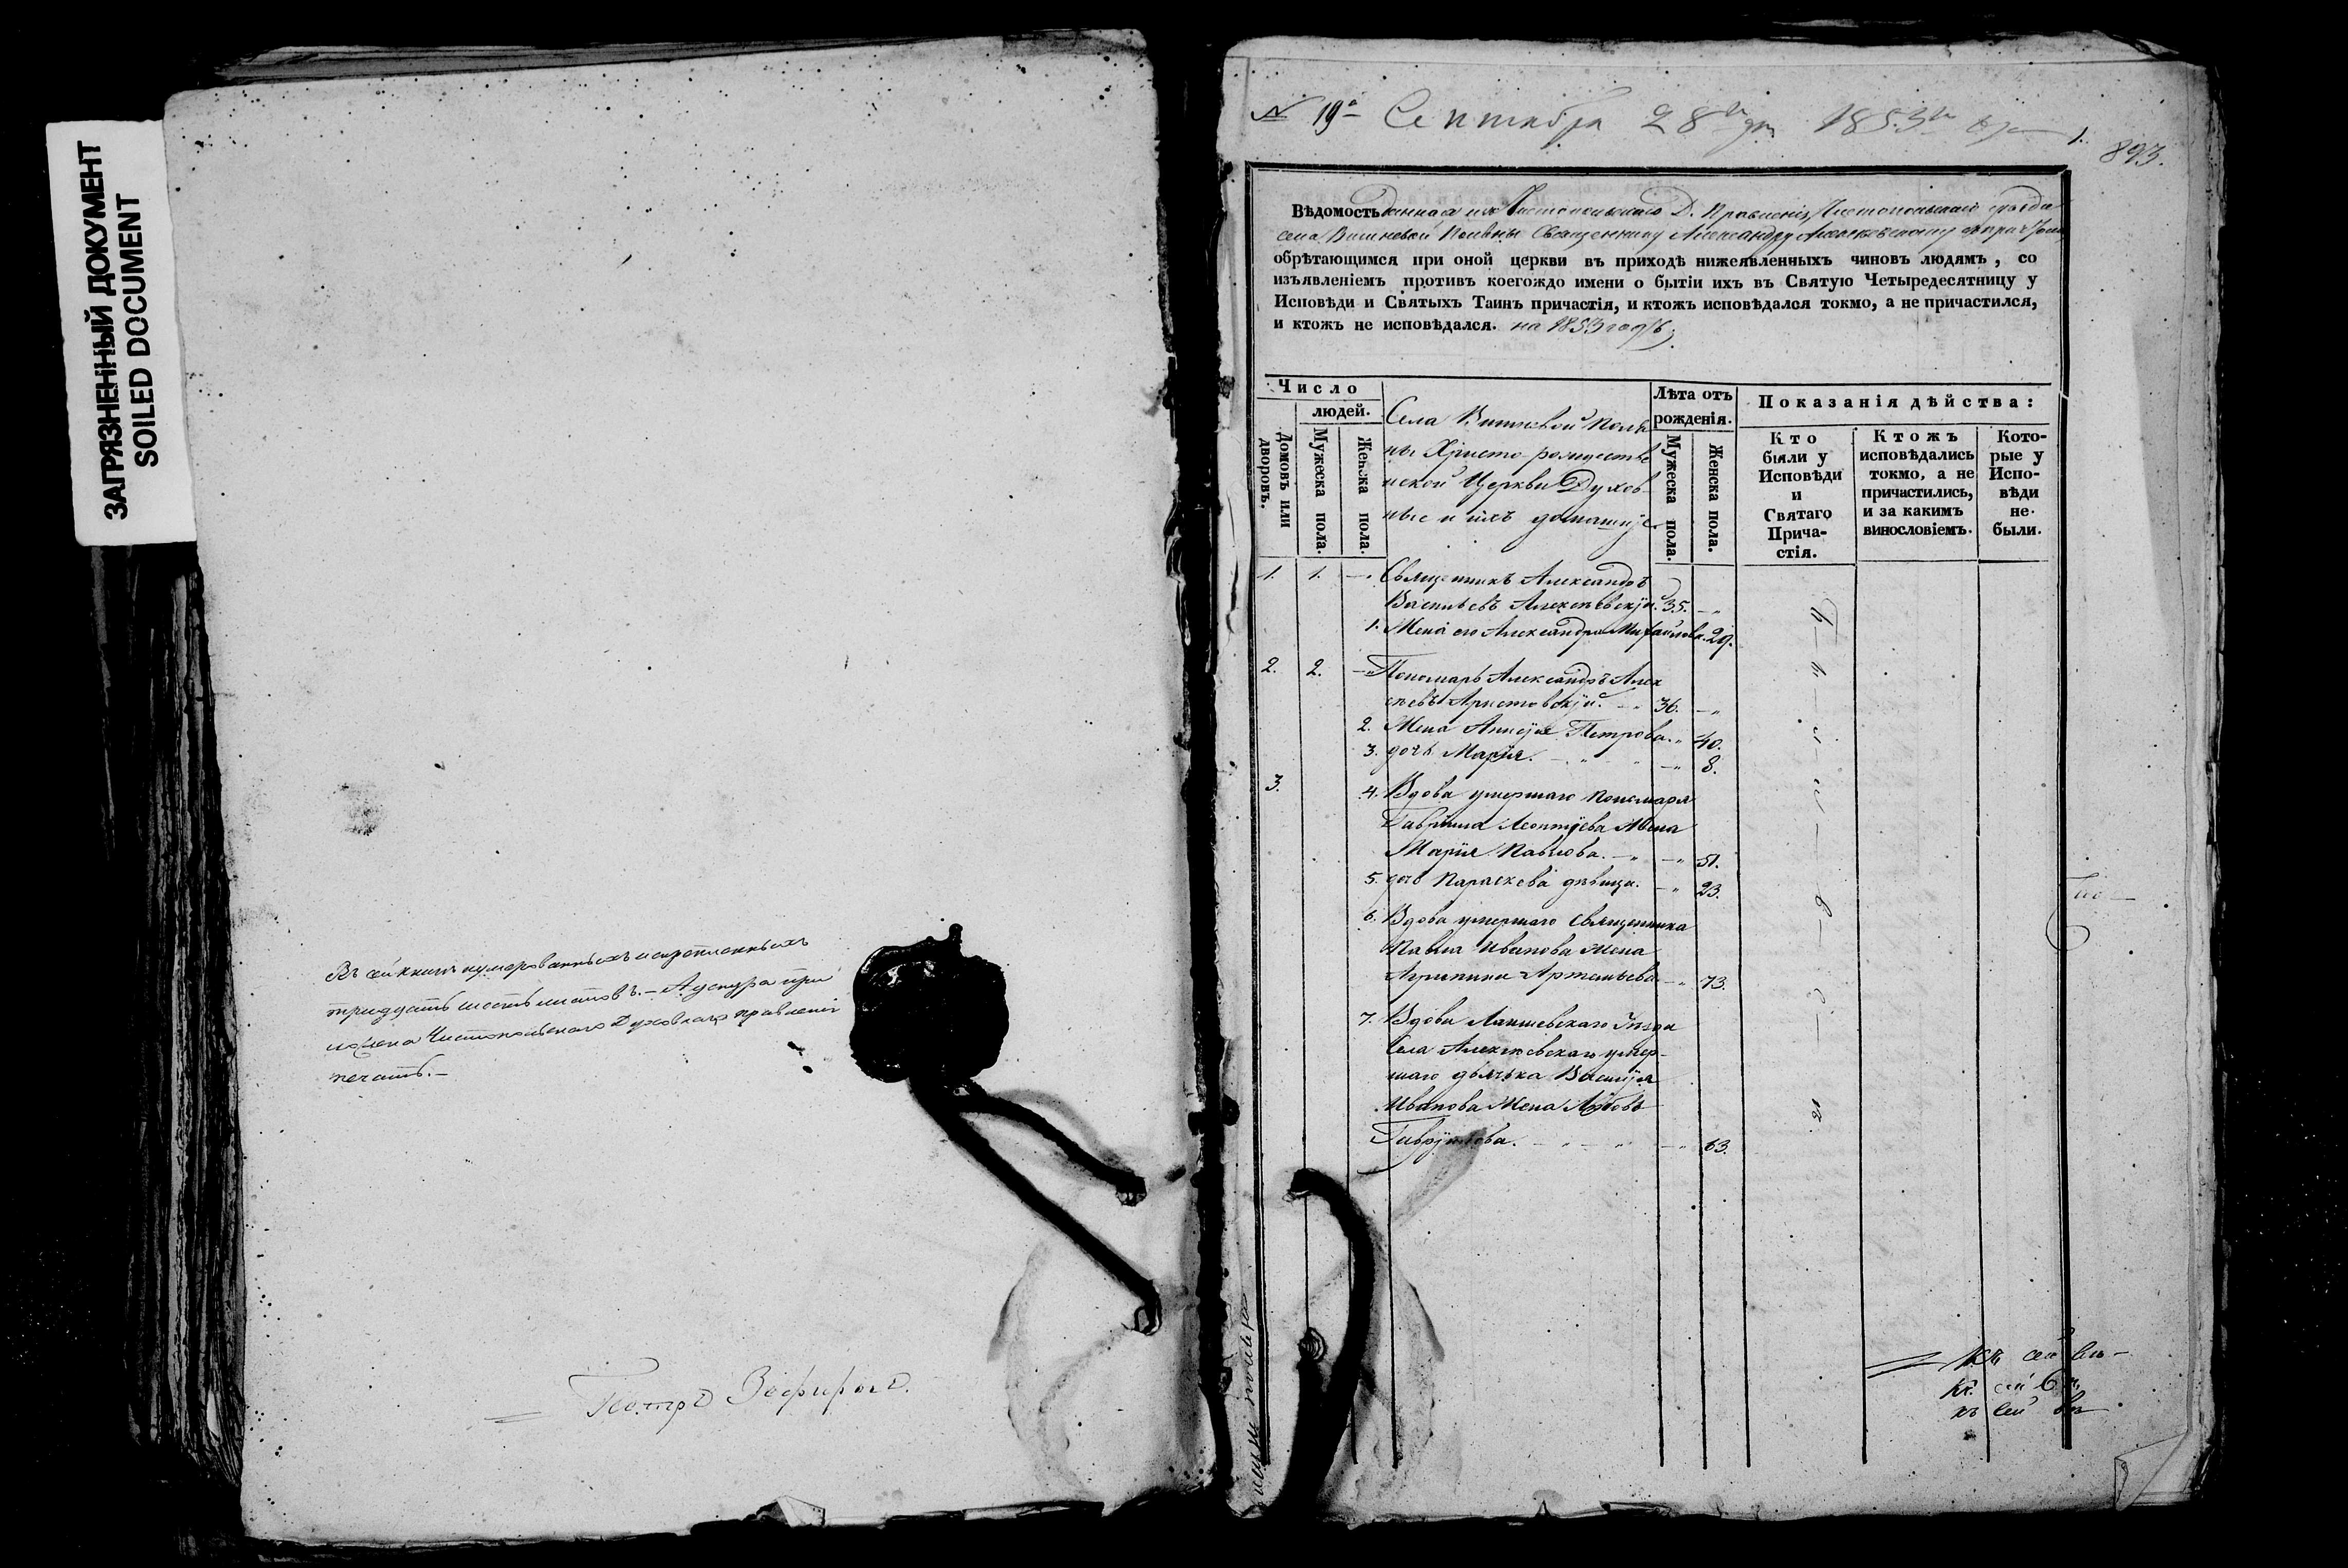 ЗАГРЯЗНЕННЫЙ ДОКУМЕНТ
SOILED DOCUMENT
тридцать шесть листовъ.
Чистопольскаго Духовнаго правленія
печать.—
Петръ Зефировъ.
№ 19й Сентября 28 1853
1.
893.
Вѣдомость данная изъ Чистопольскаго Д. Правленія, Чистопольскаго уѣзда
села Вишневой Поляны Священнику Александру Алексѣевскому съ причтомъ
обрѣтающимся при оной церкви въ приходѣ нижеявленныхъ чиновъ людямъ, со
изъявленіемъ противъ коегождо имени о бытіи ихъ въ Святую Четыредесятницу у
Исповѣди и Святыхъ Таинъ причастія, и ктожъ исповѣдался токмо, а не причастился,
и ктожъ не исповѣдался. на 1853 годъ.
Число
людей.
Домовъ или дворовъ.
Мужеска пола.
Женска пола.
Села Вишневой Поля
ны Христо рождестве
нской Церкви Духов-
ные и ихъ домашніе
Лѣта отъ
рожденія.
Мужеска пола.
Женска пола.
Показанія дѣйства:
Кто
были у
Исповѣди
и
Святаго
Прича-
стія.
Ктожъ
исповѣдались
токмо, а не
причастились,
и за какимъ
винословіемъ.
Кото-
рые у
Испо-
вѣди
не
были.
1. 1. — Священникъ Александръ
Васильевъ Алексѣевскій. 35. —
1. Жена его Александра Михайлова. 29.
2. 2. — Пономарь Александръ Алек
сѣевъ Аристовскій. 36. —
2. Жена Анисія Петрова. 40.
3. дочь Марія. 8.
3. 4. Вдова умершаго пономаря
Гавріила Леонтіева Жена
Марія Павлова. 51.
5. дочь Параскева дѣвица. 23.
6. Вдова умершаго Священника
Павла Иванова Жена
Агрипина Артемьева 73.
7. Вдова Лаишевскаго Уѣзда
Села Алексѣевскаго умер-
шаго дьячька Василія
Иванова Жена Любовь
Гавріилова. 63.
Къ сей вѣ-
къ сей вѣ